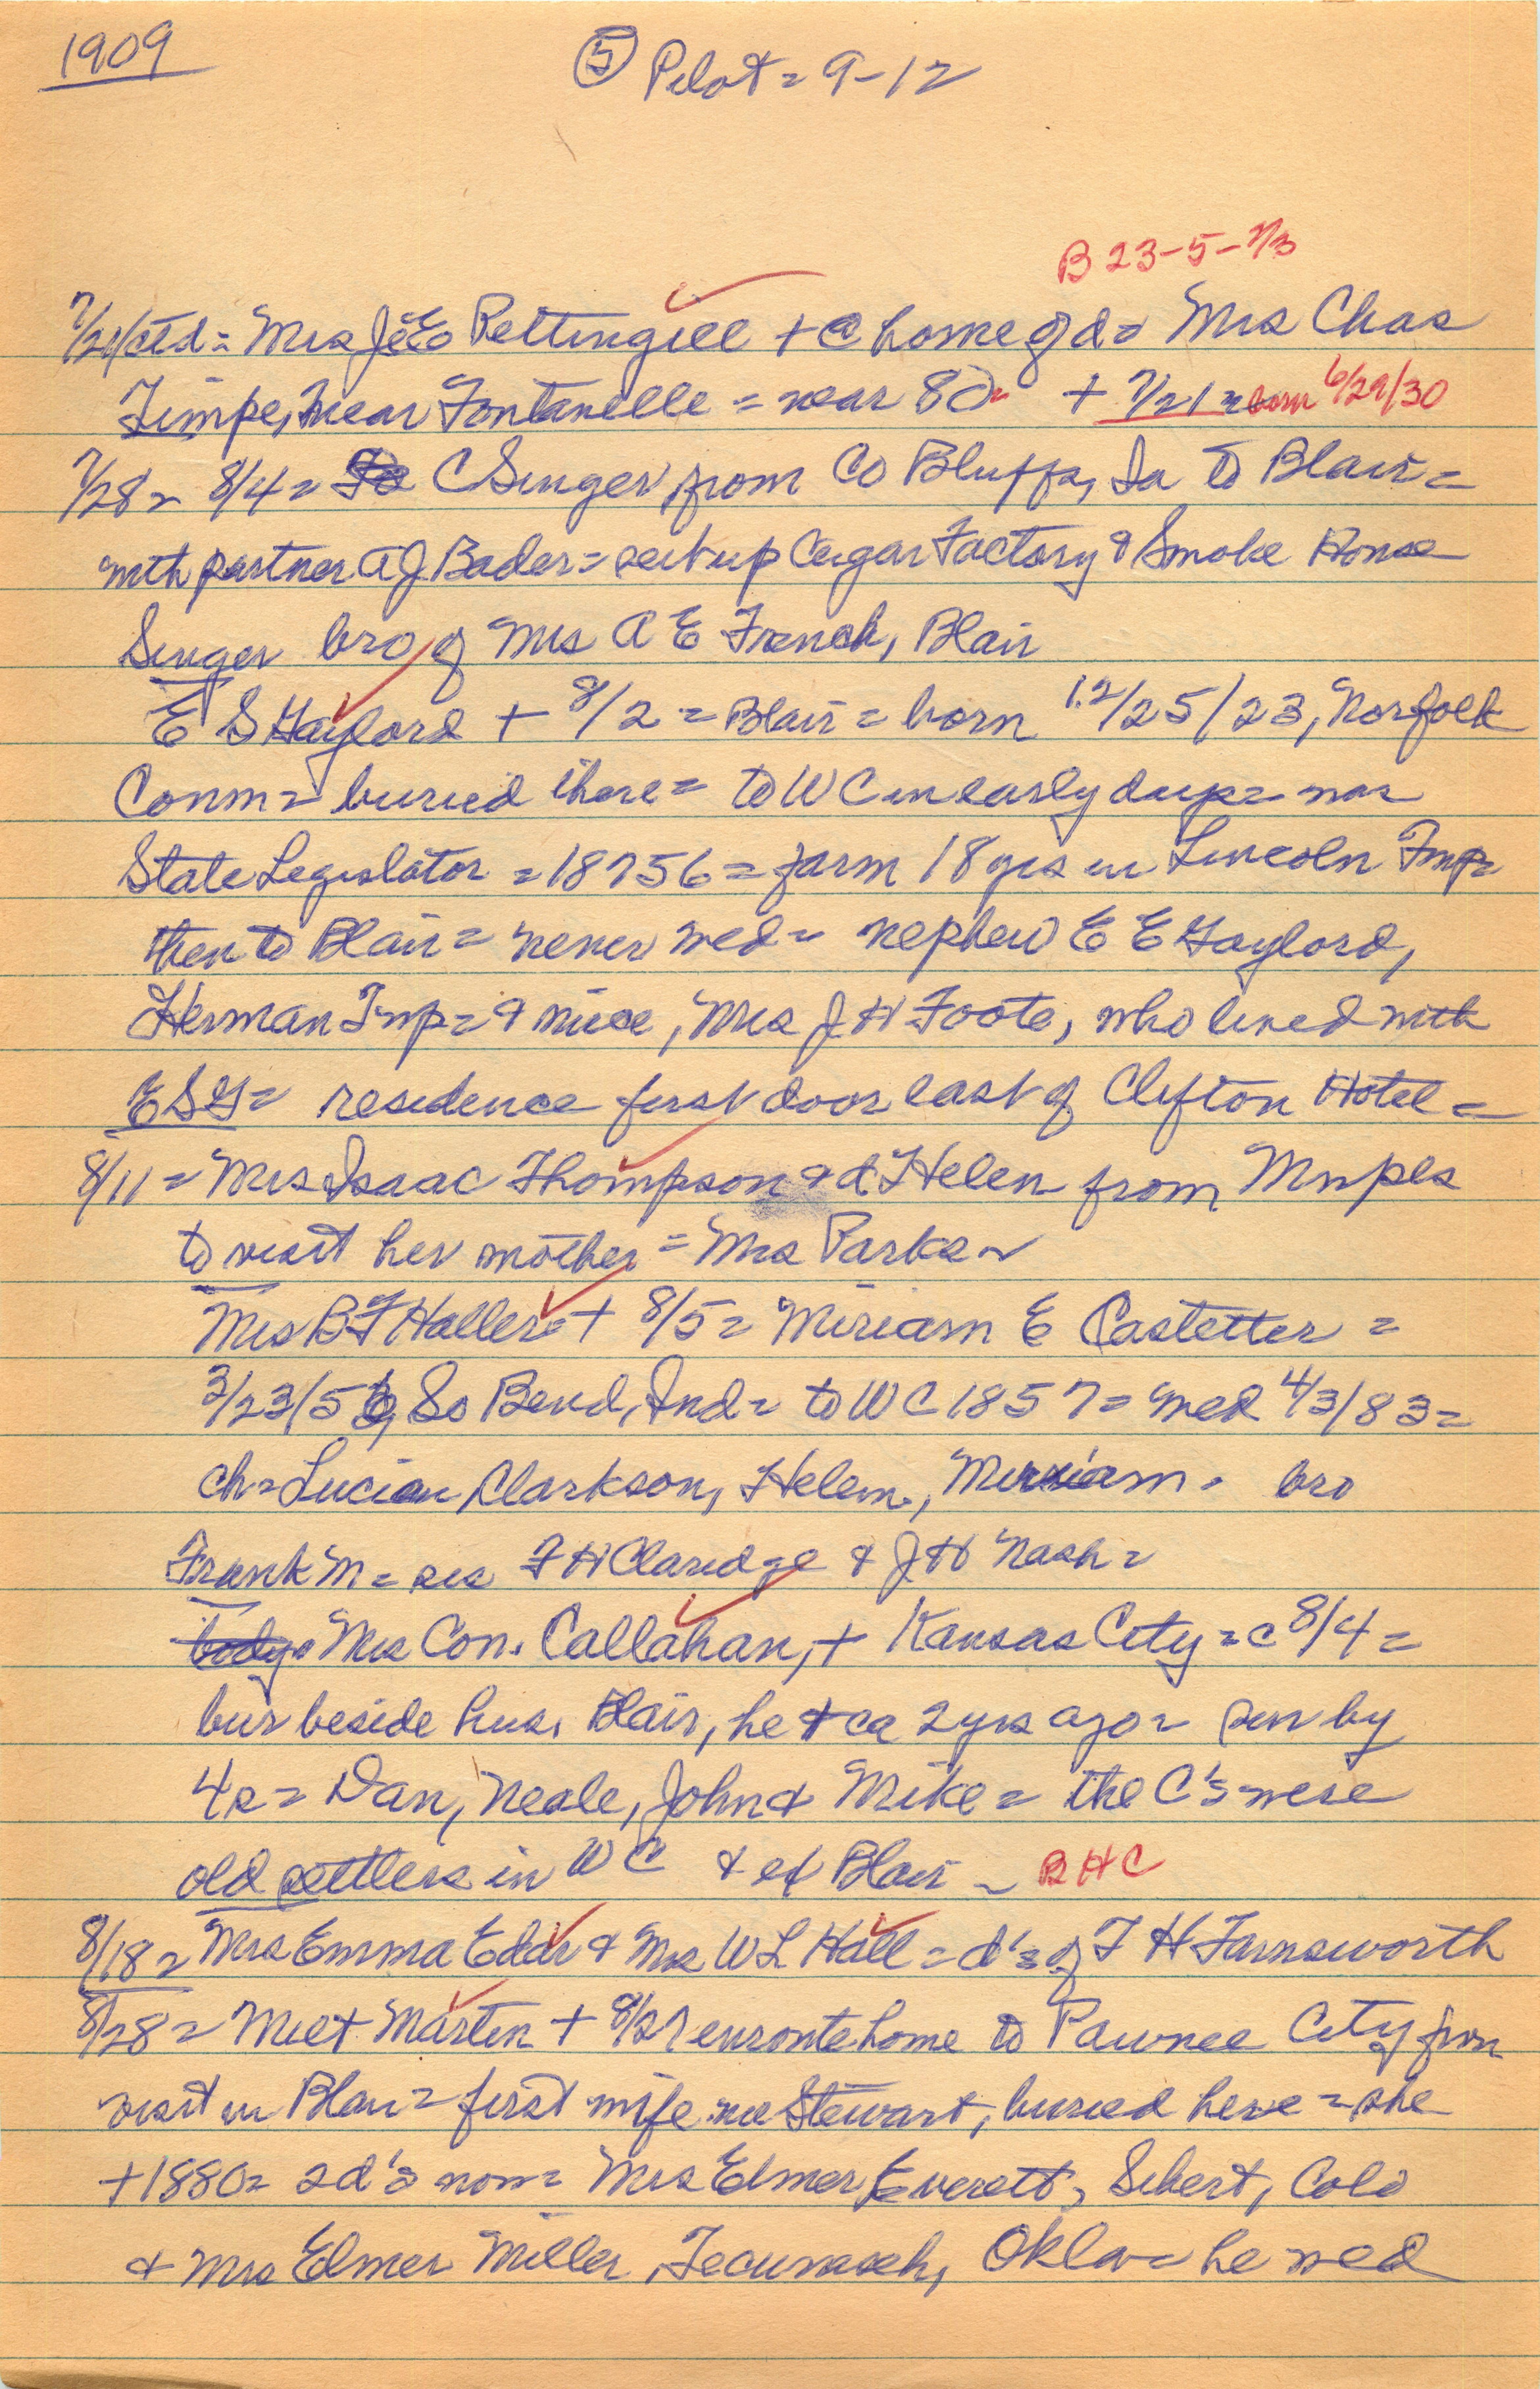 1909
⑤ Pilot = 9-12
B 23-5-7/3
7/21/ctd = Mrs J E Pettingill + @ home of d = Mrs Chas
Timpe, near Fontanelle = near 80 + 7/21 = born 6/29/30
7/28 = 8/4 = C Singer from Co Bluffs, Ia to Blair =
with partner A J Bader = set up Cigar Factory & Smoke House
Singer bro of Mrs A E French, Blair
E S Gaylord + 8/2 = Blair = born 12/25/23, Norfolk
Conn = buried there = to W C in early days = was
State Legislator = 18756 = farm 18 yrs in Lincoln Twp =
then to Blair = never wed = nephew E E Gaylord,
Herman Twp = & niece, Mrs J H Foote, who lived with
ESG = residence first door east of Clifton Hotel =
8/11 = Mrs Isaac Thompson & d Helen from Mnpls
to visit her mother = Mrs Parks ~
Mrs B F Haller = + 8/5 = Miriam E Castetter =
3/23/56, So Bend, Ind = to W C 1857 = wed 4/3/83 =
ch = Lucien Clarkson, Helen, Miriam. bro
Frank M = sis F H Claridge & J H Nash =
body = Mrs Con. Callahan, + Kansas City = c 8/4 =
bur beside hus. Blair, he + ca 2 yrs ago = sur by
4 s = Dan, Neale, John & Mike = the C's were
old settlers in W C & of Blair ~ BHC
8/18 = Mrs Emma Eddy & Mrs W L Hall = d's of F H Farnsworth
8/28 = Milt Martin + 8/21 enroute home to Pawnee City from
visit in Blair = first wife nee Stewart, buried here = she
+ 1880 = 2 d's now = Mrs Elmer Everett, Sibert, Colo
& Mrs Elmer Miller, Tecumseh, Okla = he wed